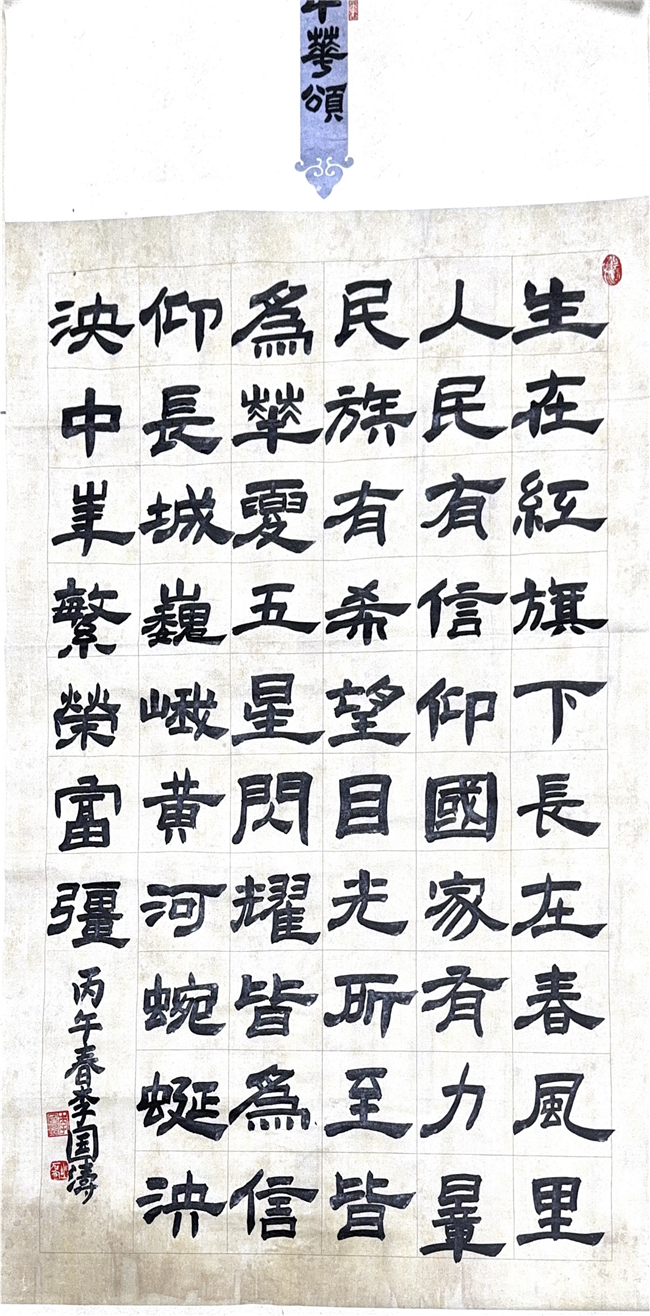 中華頌
生在紅旗下長在春風里
人民有信仰國家有力量
民族有希望目光所至皆
爲華夏五星閃耀皆爲信
仰長城巍峨黄河蜿蜒泱
泱中華繁榮富彊
丙午春李国濤